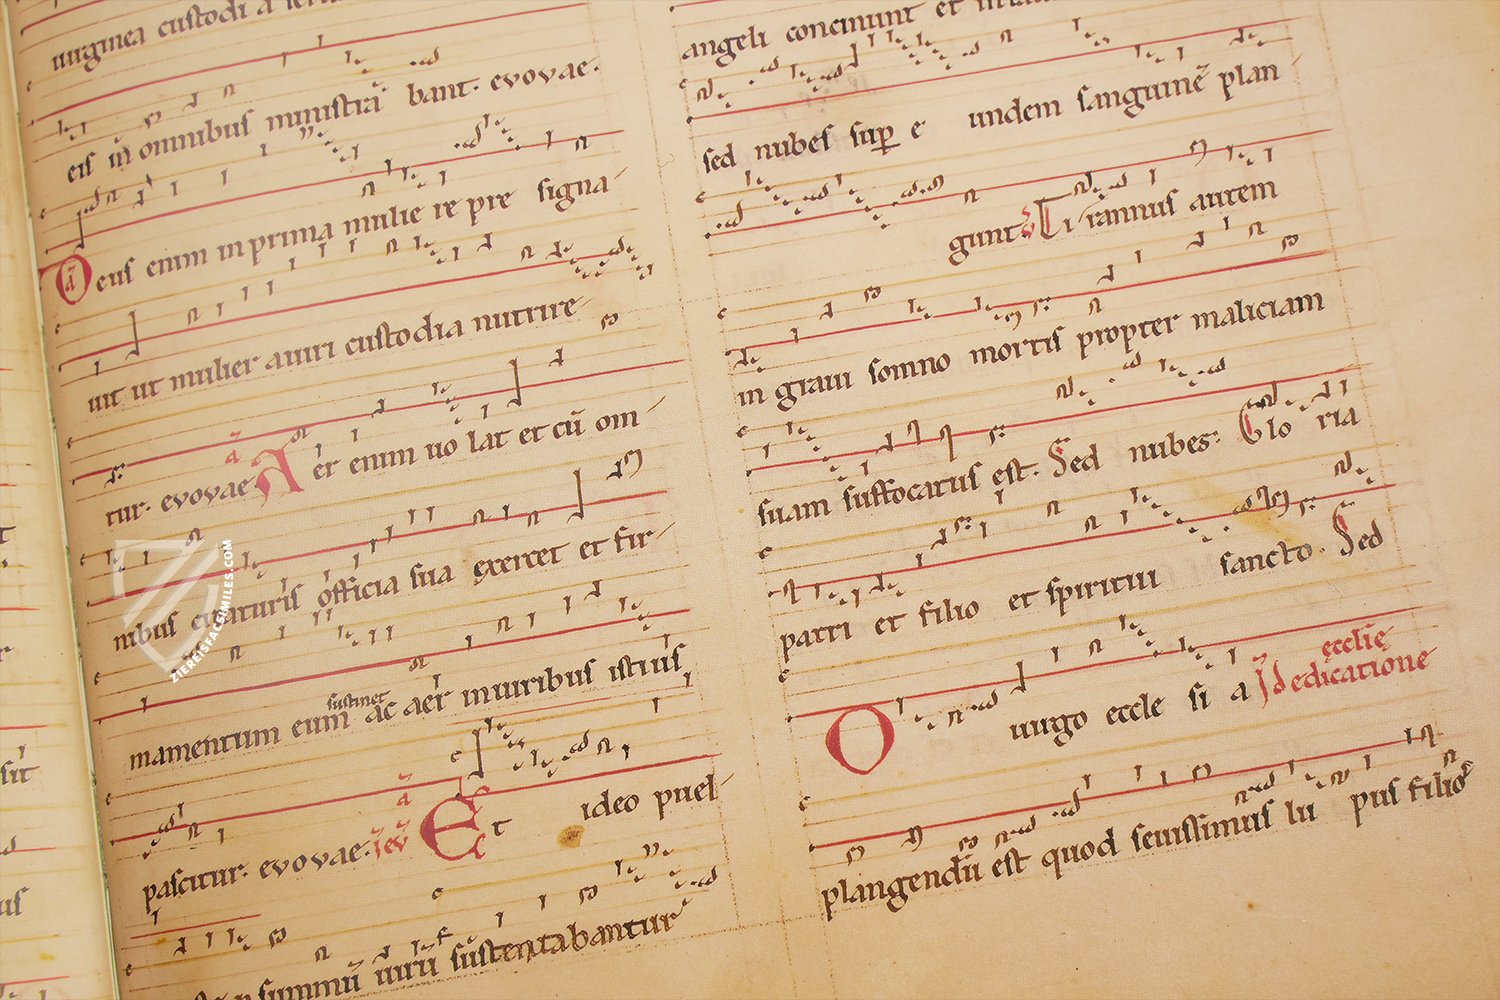 uirginea custodi a
eis in omnibus ministra bant. evovae.
Deus enim in prima mulie re pre signa
uit ut mulier a uiri custodia nutrire
tur. evovae. Aer enim uo lat et cū om
nibus creaturis officia sua exercet et fir
mamentum eum ac aer in uiribus istius
sustinet
pascitur. evovae. Et ideo puel
summū uirū sustentabantur
angeli concinunt et in
sed nubes sup e undem sanguinē plan
gunt. Ti rannus autem
in graui somno mortis propter maliciam
suam suffocatus est. Sed nubes. Glo ria
patri et filio et spiritui sancto. Sed
O uirgo eccle si a
In dedicatione
ecclię
plangendū est quod seuissimus lu pus filio
ZIEREISFACSIMILES.COM